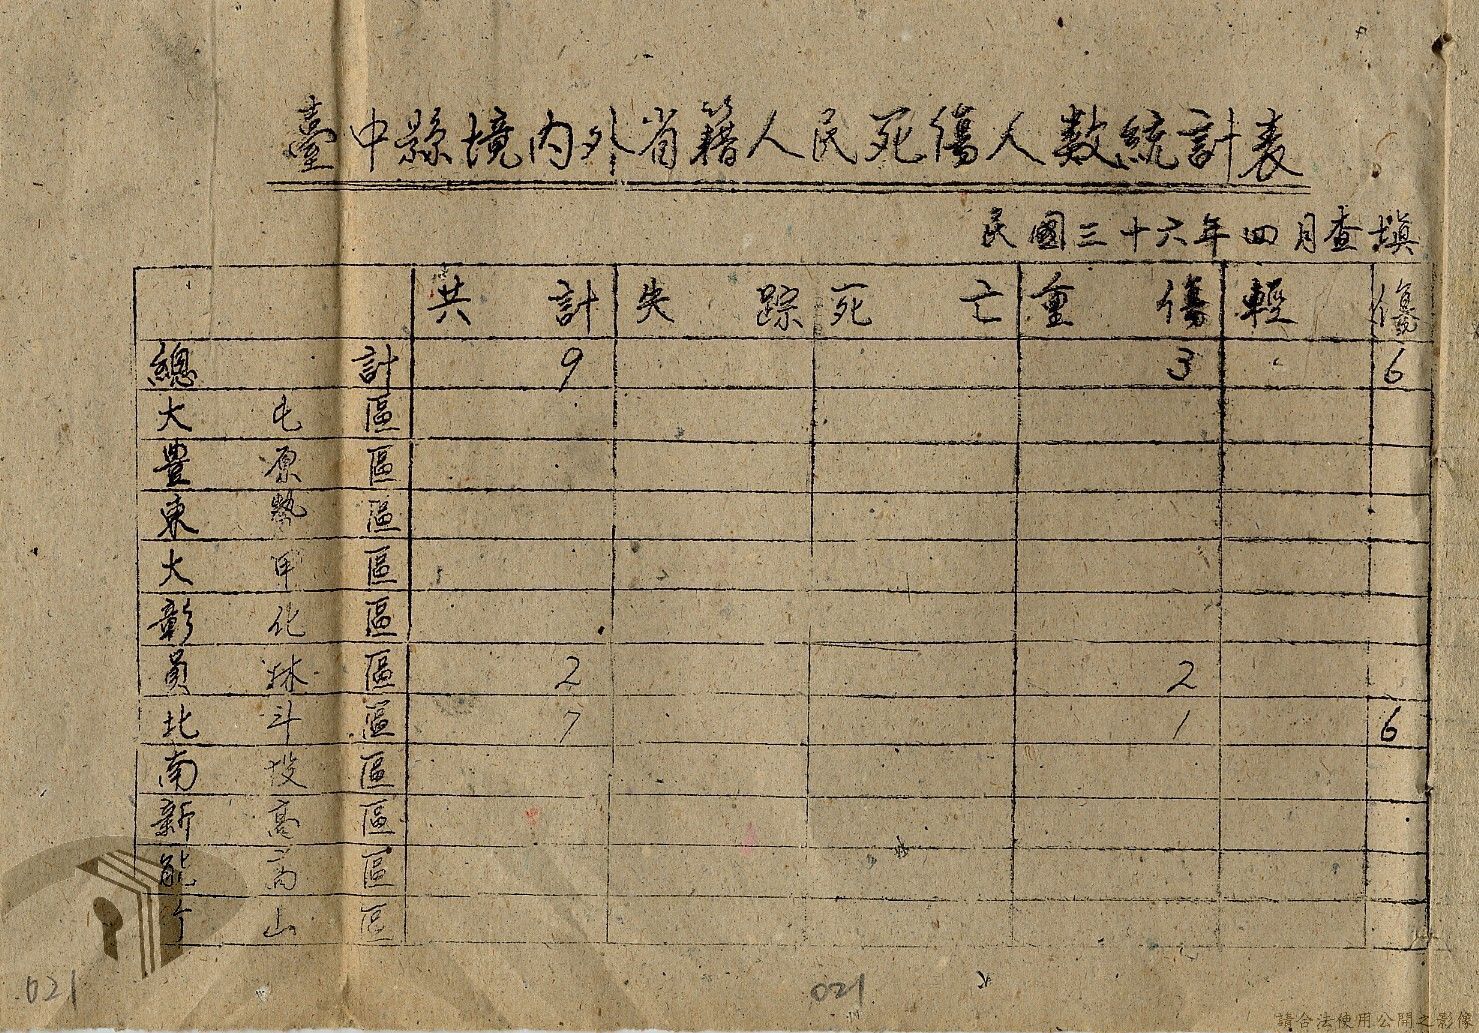 臺中縣境內外省籍人民死傷人數統計表
民國三十六年四月查填
共計 失踪 死亡 重傷 輕傷
總計 9 3 6
大屯區
豊原區
東勢區
大甲區
彰化區
員林區 2 2
北斗區 7 1 6
南投區
新高區
能高區
山區
021 021
請合法使用公開之影像